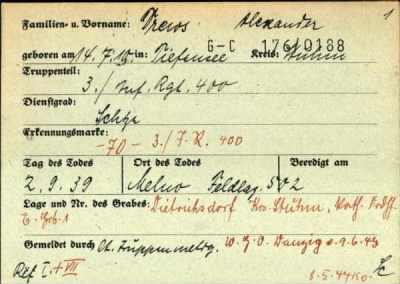 1
Familien- u. Vorname: Drews Alexander
G-C 176/0188
geboren am 14.7.19 in: Tiefensee Kreis: Stuhm
Truppenteil:
3./ Inf. Rgt. 400
Dienstgrad:
Schtz.
Erkennungsmarke:
-70- 3./J.R. 400
Tag des Todes Ort des Todes Beerdigt am
2.9.39 Melno Feldlaz. 502
Lage und Nr. des Grabes: Dietrichsdorf Krs. Stuhm, Kath. Frdhf.
Gemeldet durch lt. Truppenmeldg. W.G.O. Danzig
Ref I. + VII 8.5.44